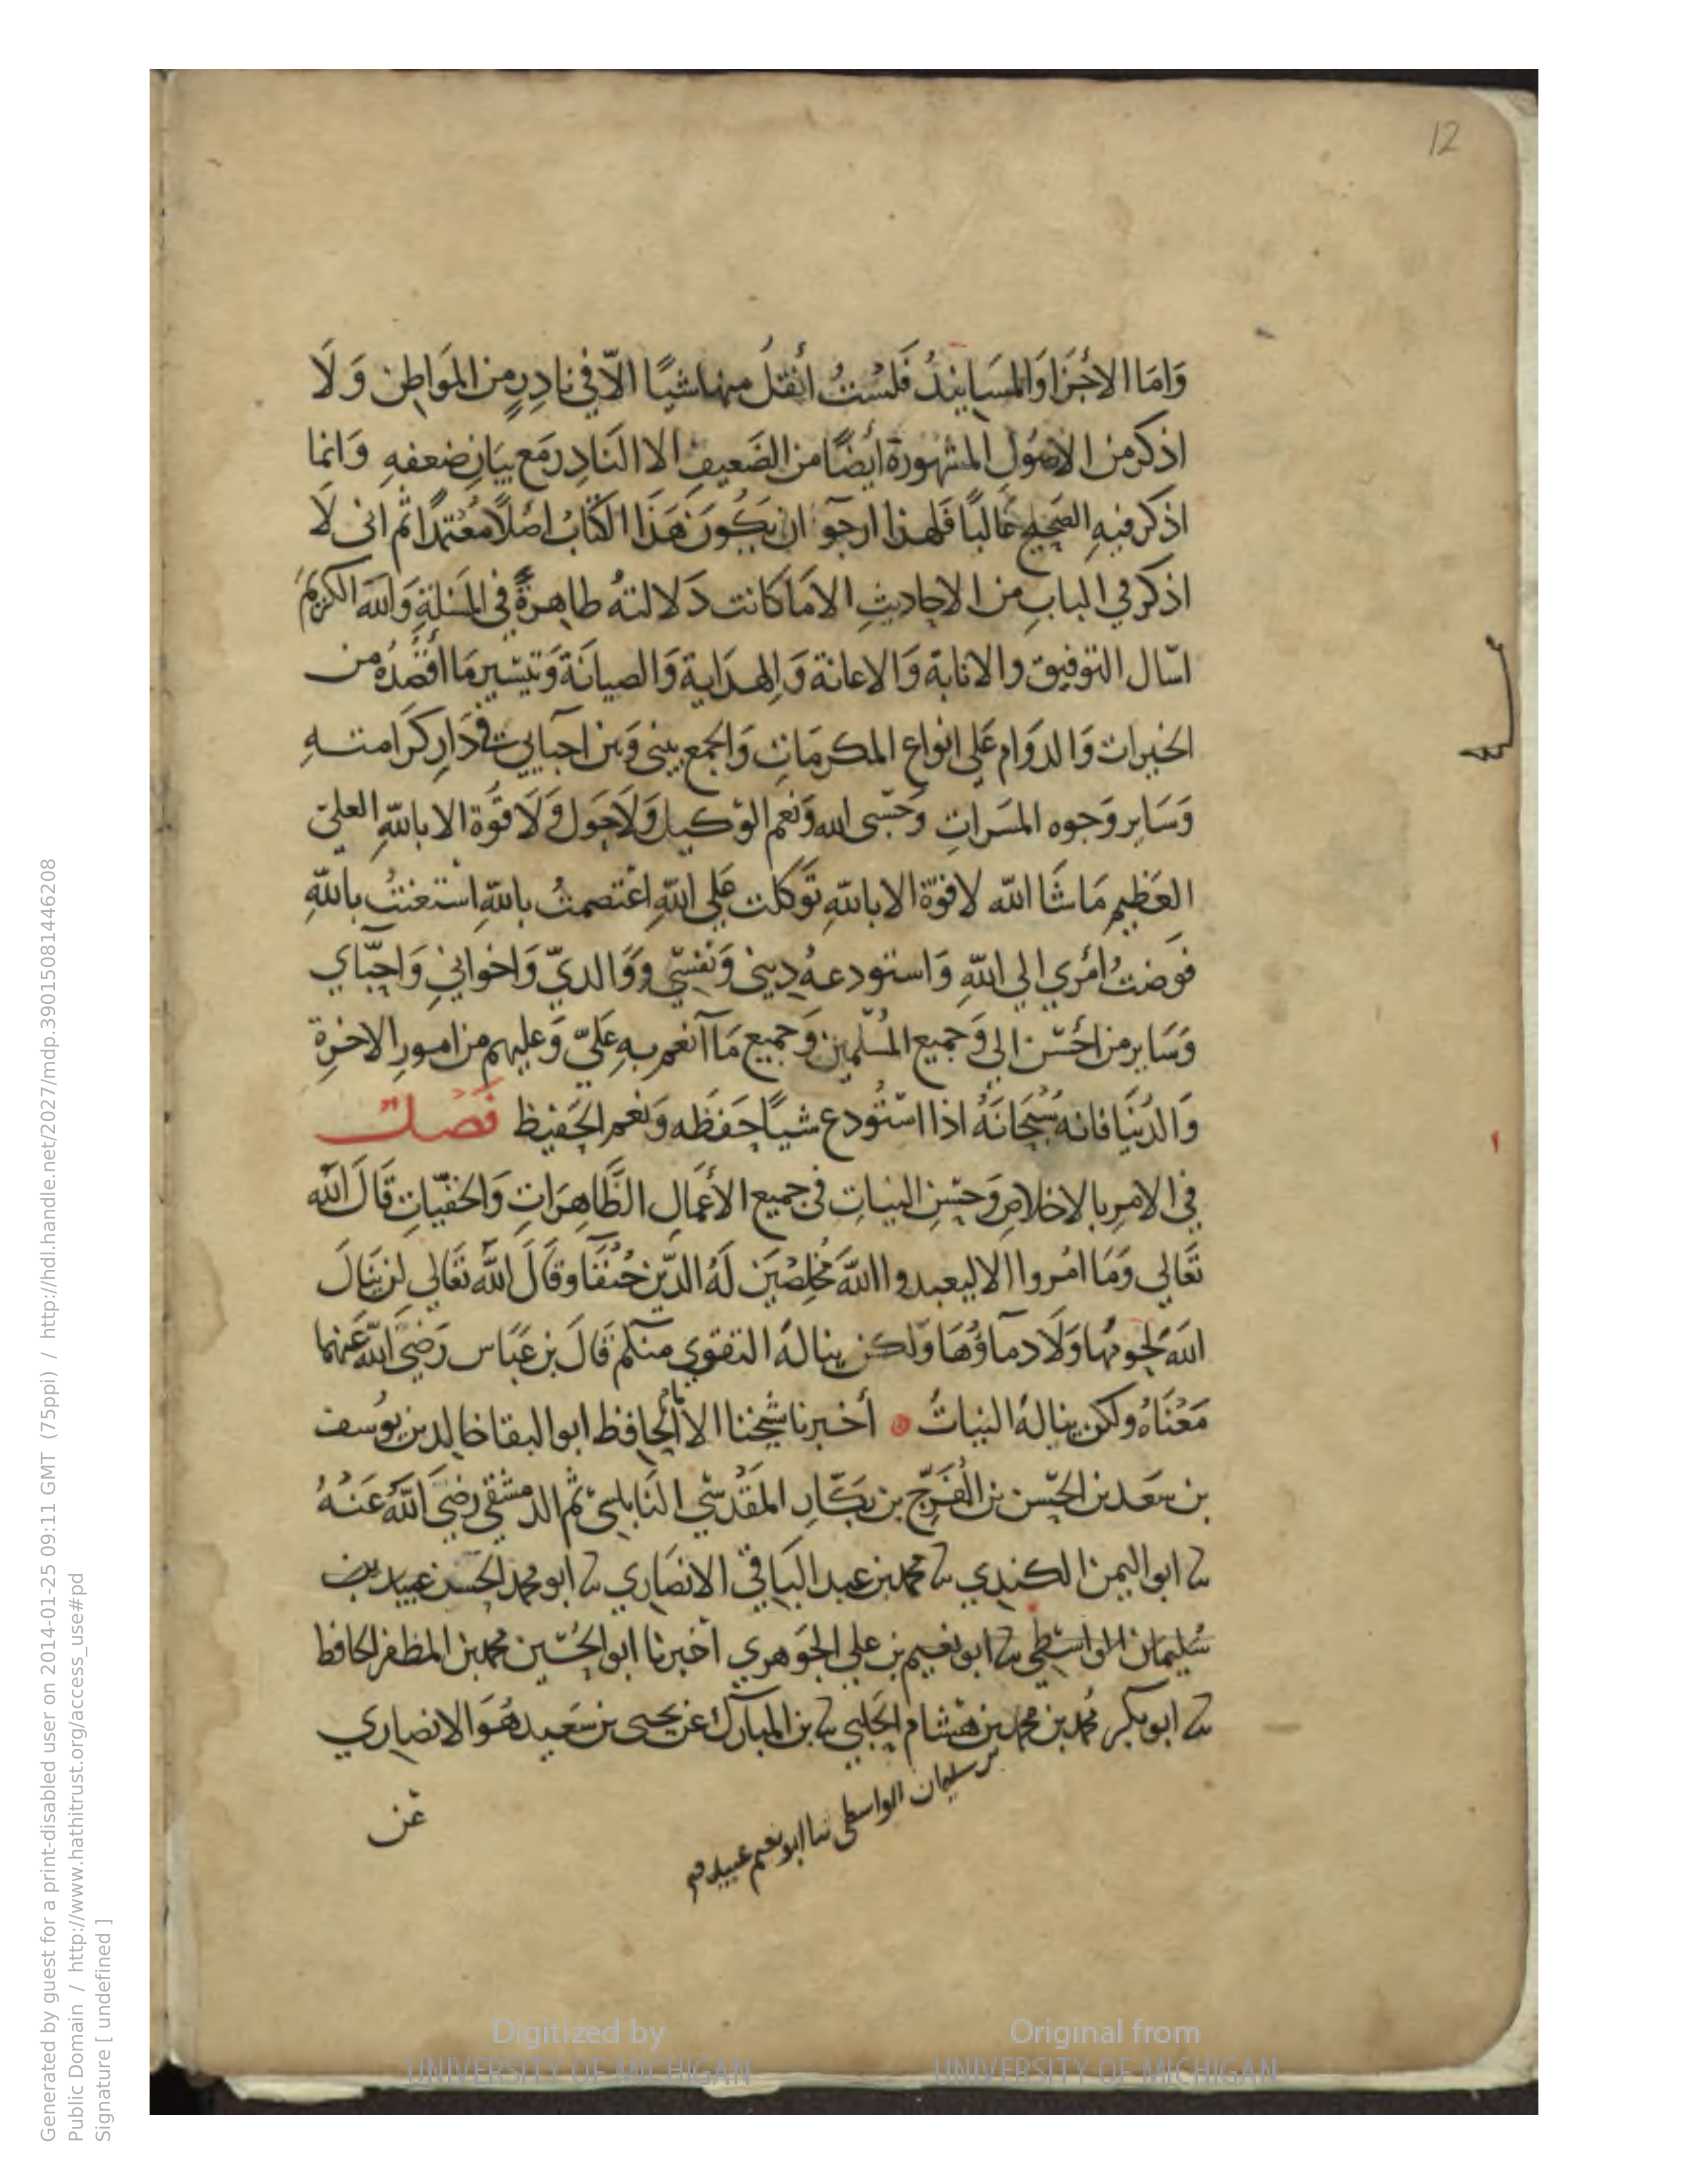 12
وَامَا الاجْزَا وَالمسَانِيدُ فَلسْتُ أنقلُ منها شيًا الّا في نادِرٍ من المَواطِن وَلَا
اذكر من الاصُولِ المشهورة ايضًا من الضَعيفِ الا النَادِر مَع بيَانِ ضعفهِ وَانما
اذكر فيهِ الصَحِيحِ غالبًا فَلهذا ارجوا ان يَكُونَ هَذَا الكتابُ اصْلًا مُعْتمدًا ثم انى لَا
اذكر في البابِ من الاحاديثِ الا مَا كانت دَلالتهُ ظاهِرةً في المسَلةِ وَاللهَ الكريمَ
اسّال التوفيق والانابة وَالاعانة وَالهدَاية وَالصيانَة وَتيسّير مَا اقصُدُه من
الخيرات وَالدوَام عَلى انواع المكرمَاتِ وَالجمع بينى وَبين احبَايي في دَارِ كرَامتهِ
وَسَاير وَجوه المسَراتِ وَحسْبى الله وَنعم الوَكيل وَلَا حَول وَلَا قوَة الا باللهِ العلىّ
العَظيم مَا شَا الله لا قوّة الا باللهِ توَكلت عَلى اللهِ اعْتصمتُ باللهِ اسْتعنتُ باللهِ
فوَضتُ امْري الى اللهِ وَاستودعهُ دِينى وَنفسْى وَوَالديّ وَاخوانيِ وَاحبّاي
وَسَاير من احْسَن الى وَجميع المُسْلمين وَجميع مَا انعم بهِ عَليّ وَعليهم من امورِ الاخرَةِ
وَالدُنيَا فانه سُبْحانَهُ اذا اسْتُودع شيًا حَفظه وَنعم الحَفيظ فَصْل
في الامرِ بالاخلاصِ وَحسْنِ النياتِ في جميع الأعمَالِ الظَاهِرَاتِ وَالخفيّاتِ قَالَ الله
تعَالى وَمَا امُروا الا ليعبدوا اللهَ مُخلصْينَ لَهُ الدّين حُنفَا وقَالَ اللهُ تعَالى لن يَنالَ
اللهَ لحُومُها وَلَا دمآؤُهَا وَلكن ينالهُ التقوي منكم قَالَ بن عَبَاس رَضِيَ اللهُ عَنهما
مَعْنَاهُ ولكن ينالهُ النياتُ أخبرنا شيخنا الامام الحافظ ابو البقا خالد بن يوُسف
بن سَعَد بن الحسَن بن الفَرَج بن بكَّارِ المَقدْسّي النَابلسى ثم الدمشقي رَضِيَ اللهُ عَنهُ
ثنا ابو اليمن الكندي ثنا محمد بن عبد البَاقي الانصَاري ثنا ابو محمد الحَسن عبيد بن
سُليمان الوَاسْطي ثنا ابو نعيم بن علي الجوَهري اخبرنا ابو الحُسَين محمد بن المظفر الحافظ
ثنا ابو بكر مُحمد بن محمد بن هشام الحَلبي ثنا بن المبارَك عن يحيى بن سَعيد هُوَ الانصاري
بن سليمان الواسطى ثنا ابو نعيم عبيد
عَن
Digitized by
UNIVERSITY OF MICHIGAN
Original from
UNIVERSITY OF MICHIGAN
Generated by guest for a print-disabled user on 2014-01-25 09:11 GMT (75ppi) / http://hdl.handle.net/2027/mdp.39015081446208
Public Domain / http://www.hathitrust.org/access_use#pd
Signature [ undefined ]